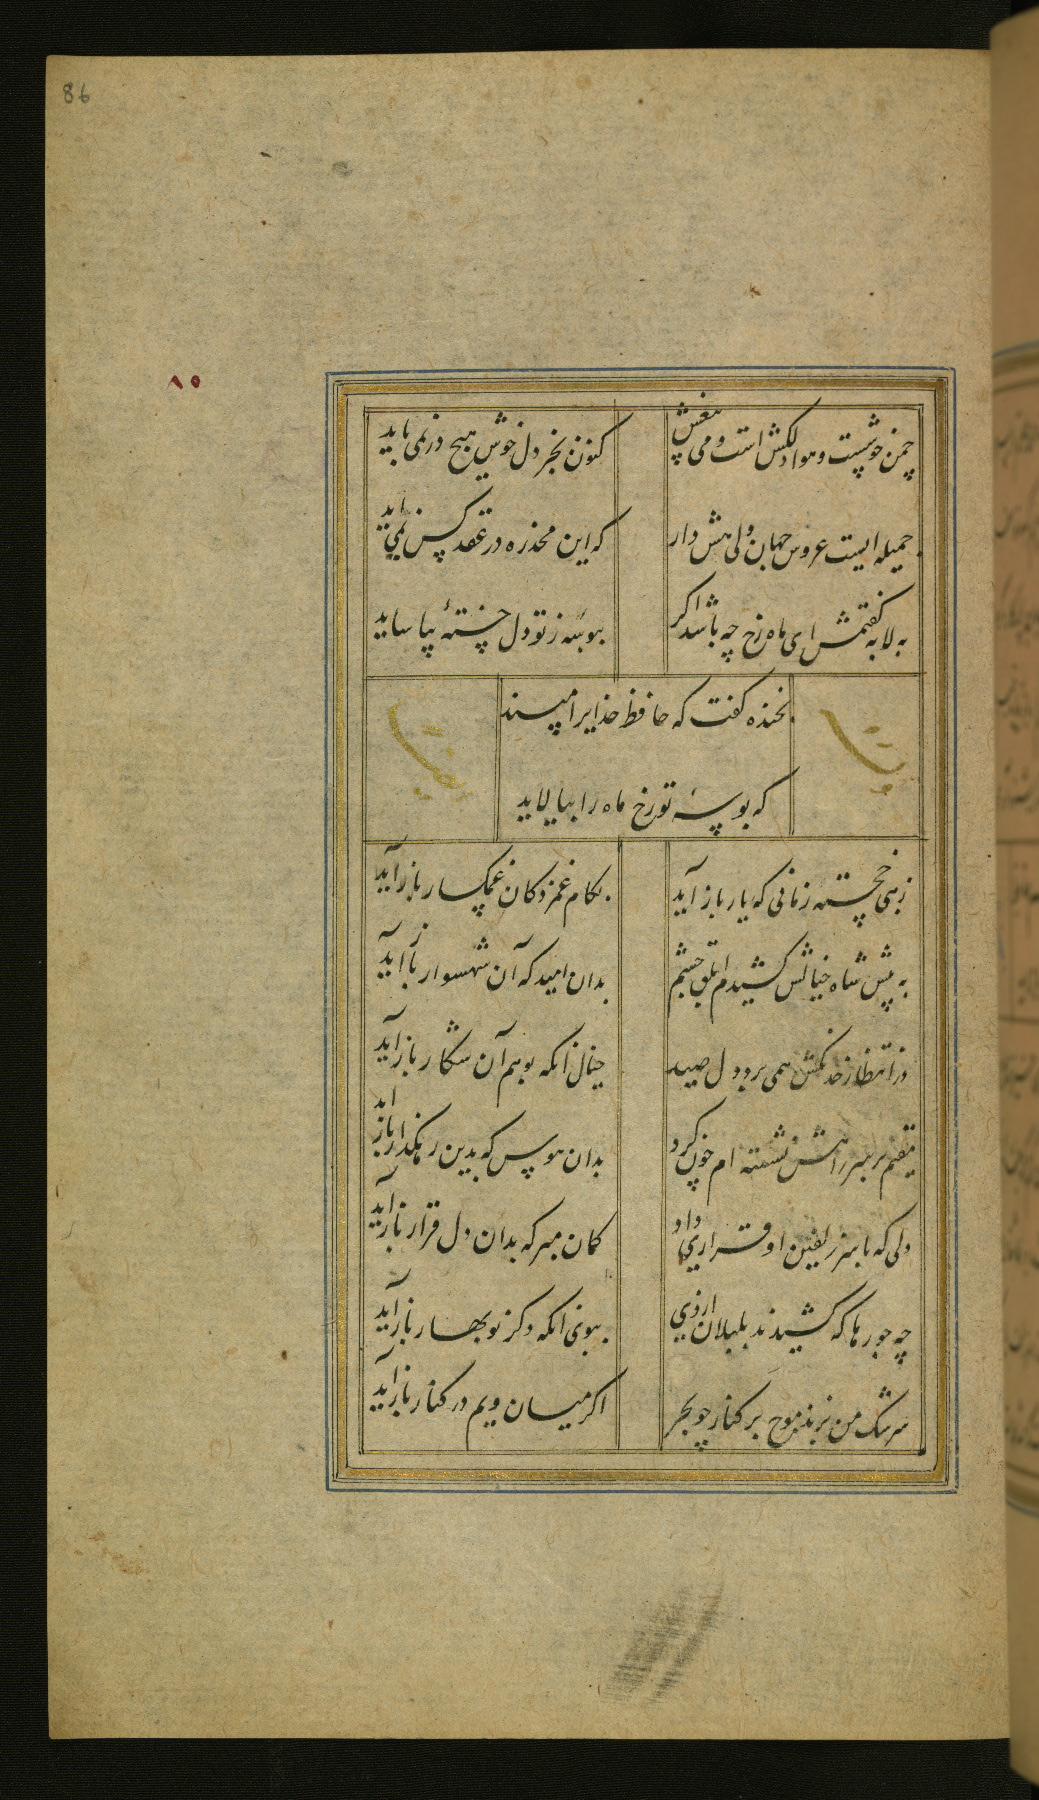 86
۸۵
چمن خوشست و هوا دلکش است و می بیغش
کنون بجز دل خوش هیچ در نمی باید
جمیله ایست عروس جهان ولی هش دار
که این مخذره در عقد کس نمی آید
به لابه گفتمش ای ماه رخ چه باشد اگر
ببوسه ز تو دل خستهٔ بیاساید
بخنده گفت که حافظ خدایرا مپسند
که بوسه تو رخ ماه را بیالاید
زهی خجسته زمانی که یار باز آید
بکام غمزدگان غمگسار باز آید
به پیش شاه خیالش کشیدم ابلق چشم
بدان امید که آن شهسوار باز آید
در انتظار خدنگش همی برد دل صید
خیال آنکه بوهم آن شکار باز آید
مقیم بر سر راهش نشسته ام چون کرد
بدان هوس که بدین رهگذار باز آید
دلی که با سر زلفین او قراری داد
گمان مبر که بدان دل قرار باز آید
چه جورها که کشیدند بلبلان از دی
ببوی آنکه دگر نوبهار باز آید
سرشک من نزند موج بر کنار چو بحر
اگر میان ویم در کنار باز آید